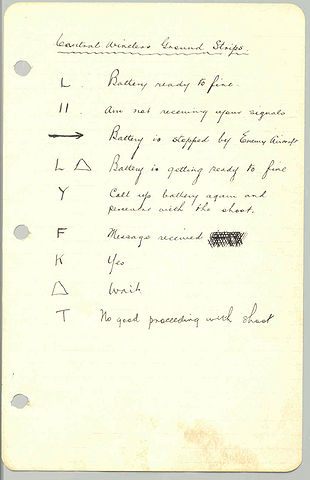 Central Wireless Ground Strips.
L. Battery ready to fire.
II. Am not receiving your signals
→ Battery is stopped by Enemy Aircraft
L △ Battery is getting ready to fire
Y Call up battery again and
persevere with the shoot.
F Message received
K Yes
△ Wait
T No good proceeding with shoot